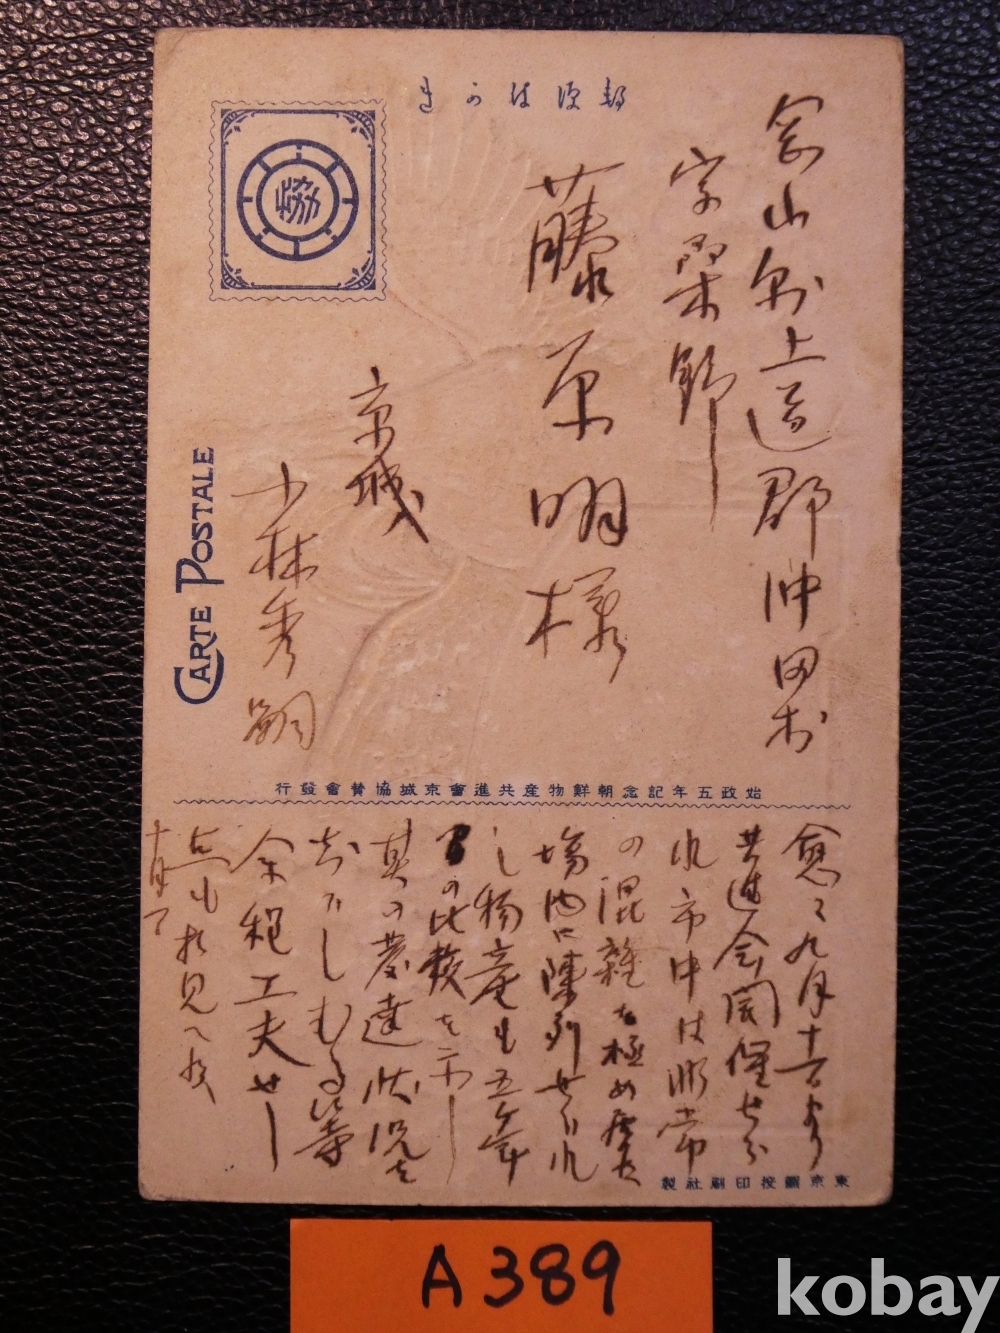 郵便はかき
岡山縣上道郡沖田村
字桑野
藤原明様
京城
小林秀嗣
CARTE POSTALE
始政五年記念朝鮮物産共進會京城協賛會發行
愈々九月十一日より
共進会開催せら
れ市中は非常
の混雑を極め
場内に陳列せられ
し物産も五年
の比較を示し
其の発達状況を
知らしむる等
余程工夫せし
点も相見へ
東京國技印刷社製
A389
kobay